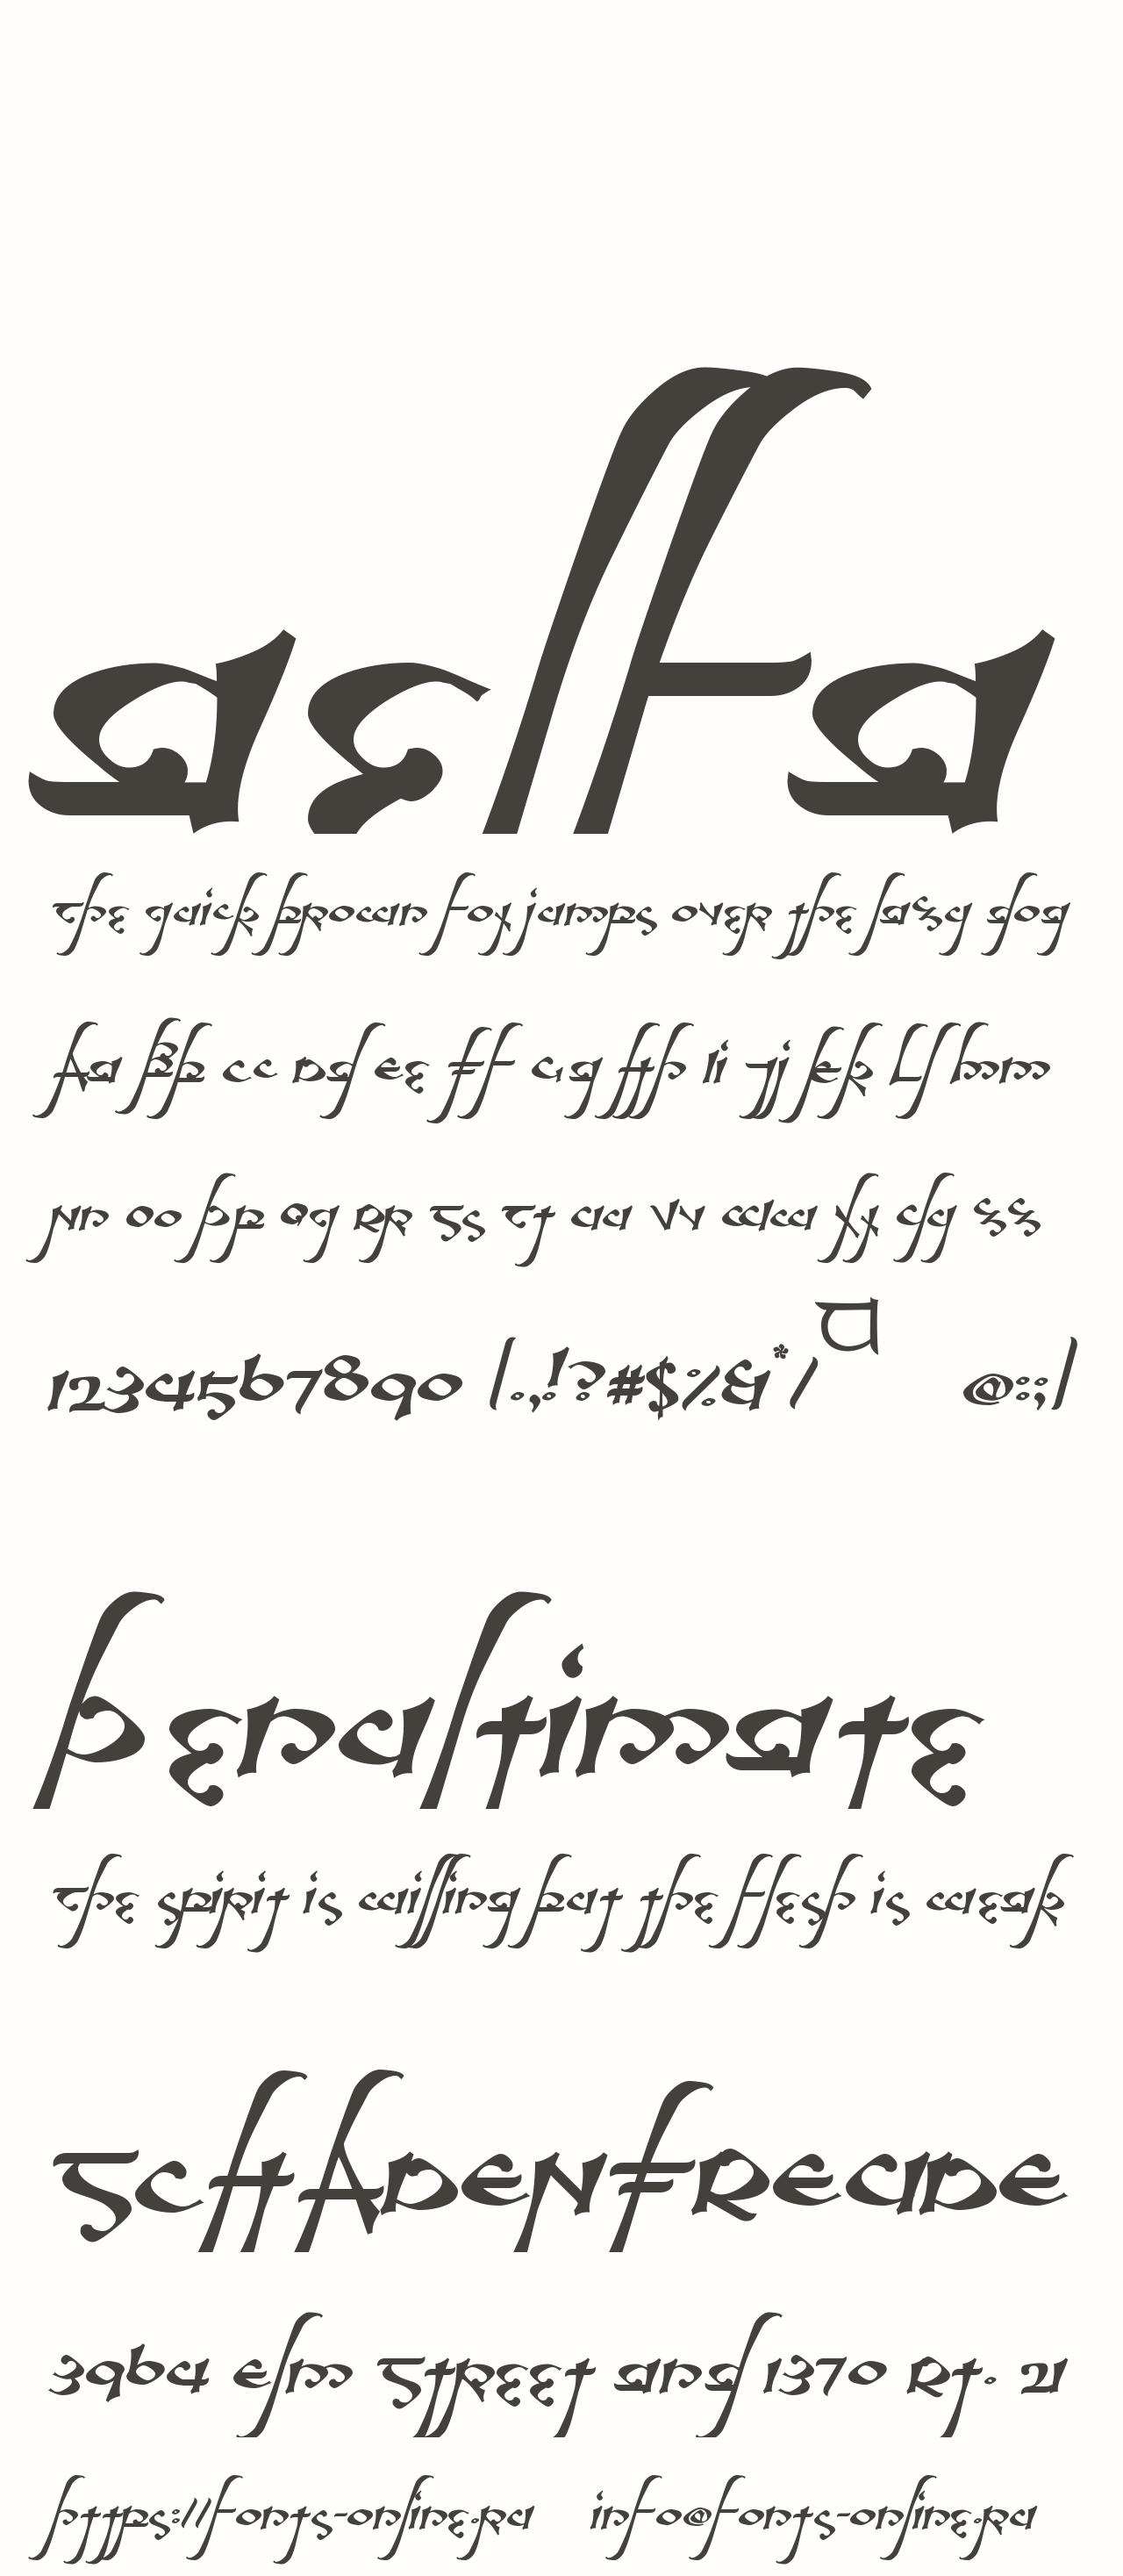 aelfa
The quick brown fox jumps over the lazy dog
Aa Bb Cc Dd Ee Ff Gg Hh Ii Jj Kk Ll Mm
Nn Oo Pp Qq Rr Ss Tt Uu Vv Ww Xx Yy Zz
1234567890 (.,!?#$%&*/ @:;)
Penultimate
The spirit is willing but the flesh is weak
SCHADENFREUDE
3964 Elm Street and 1370 Rt. 21
https://fonts-online.ru info@fonts-online.ru